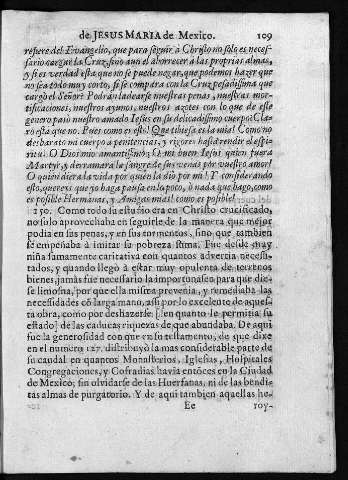 de JESUS MARIA de Mexico. 109
refiere del Evangelio, que para seguir à Christo no solo es neces-
sario cargar la Cruz, sino aun el aborrecer à las proprias almas,
y si es verdad esta que no se puede negar, que podemos hazer que
no sea todo muy corto, si se compara con la Cruz pesadissima que
cargò el Señor? Podràn ladearse nuestras penas, nuestras mor-
tificaciones, nuestros ayunos, nuestros azotes con lo que de este
genero passò nuestro amado Iesus en su delicadissimo cuerpo? Cla-
ro està que no. Pues como es esto! Que tibieza es la mia! Como no
desbarato mi cuerpo à penitencias, y rigores hasta rendir el espi-
ritu! O Dios mio amantissimo! O mi buen Iesus! quien fuera
Martyr, y derramara la sangre de sus venas por vuestro amor!
O quien diera la vida por quien la diò por mi! Y considerando
esto, quereys que yo haga pausa en lo poco, ò nada que hago, como
es posible Hermanas, y Amigas mias! como es posible!
250. Como todo su estudio era en Christo crucificado,
no solo aprovechaba en seguirle de la manera que mejor
podia en sus penas, y en sus tormentos, sino que tambien
se empeñaba à imitar su pobreza suma. Fue desde muy
niña sumamente caritativa con quantos advertia necessi-
tados, y quando llegò à estar muy opulenta de terrenos
bienes, jamàs fue necessario la importunasen para que die-
se limosna, por que ella misma prevenia, y remediaba las
necessidades cõ larga mano, assi por lo excelente de aques-
ta obra, como por deshazerse [en quanto le permitia su
estado] de las caducas riquezas de que abundaba. De aqui
fue la generosidad con que en su testamento, de que dixe
en el numero 127. distribuyò la mas considerable parte de
su caudal en quantos Monasterios, Iglesias, Hospitales
Congregaciones, y Cofradias havia entõces en la Ciudad
de Mexico, sin olvidarse de las Huerfanas, ni de las bendi-
tas almas de purgatorio. Y de aqui tambien aquellas he-
Ee roy-